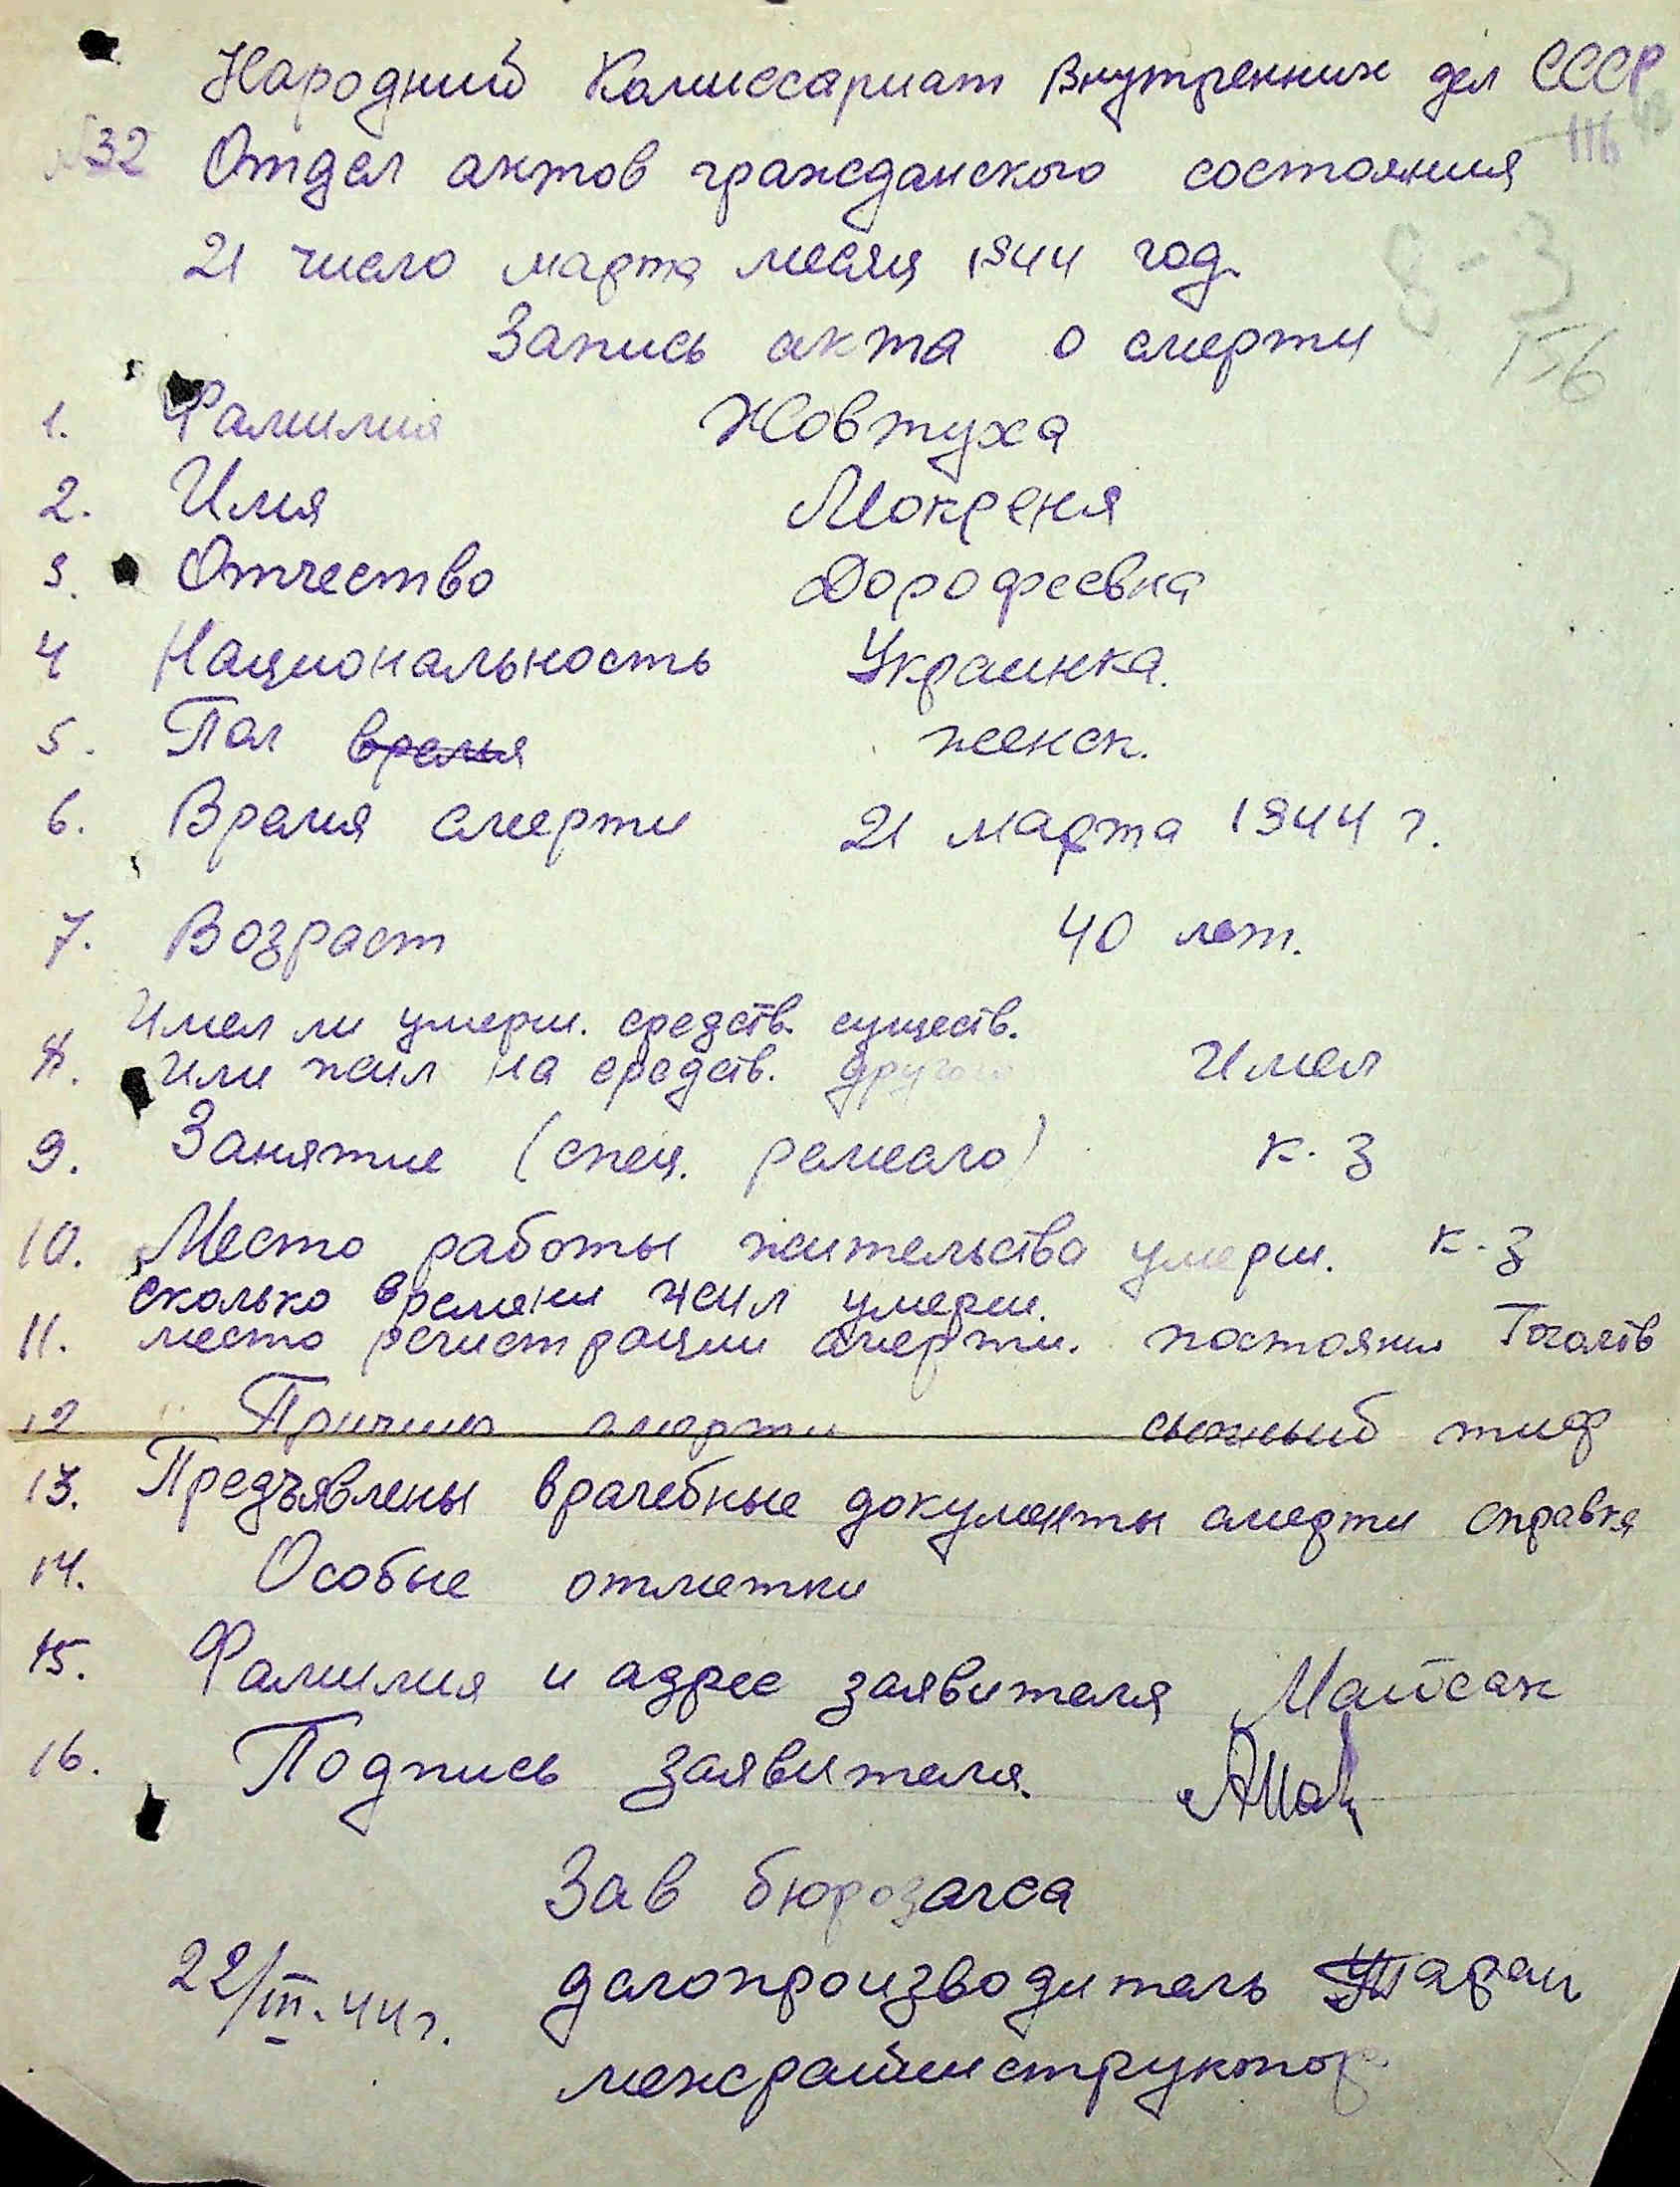 Народний Комиссариат Внутренних дел СССР
№32 Отдел актов гражданского состояния 116
21 число марта месяц 1944 год.
8-3
Запись акта о смерти
156
1. Фамилия Жовтуха
2. Имя Мокреня
3. Отчество Дорофеевна
4 Национальность Украинка.
5. Пол время женск.
6. Время смерти 21 марта 1944 г.
7. Возраст 40 лет.
Имел ли умерш. средств. существ.
8. или жил на средств. другого Имел
9. Занятие (спец. ремесло) к-з
10. Место работы жительства умерш. к-з
сколько времени жил умерш.
11. место регистрации смерти. постоянно
12 Причина смерти сыпный тиф
13. Предъявлены врачебные документы смерти справка
14. Особые отметки
15. Фамилия и адрес заявителя Майсак
16. Подпись заявителя.
Зав бюрозагса
22/III-44г. делопроизводитель Таран
межрайинструктор